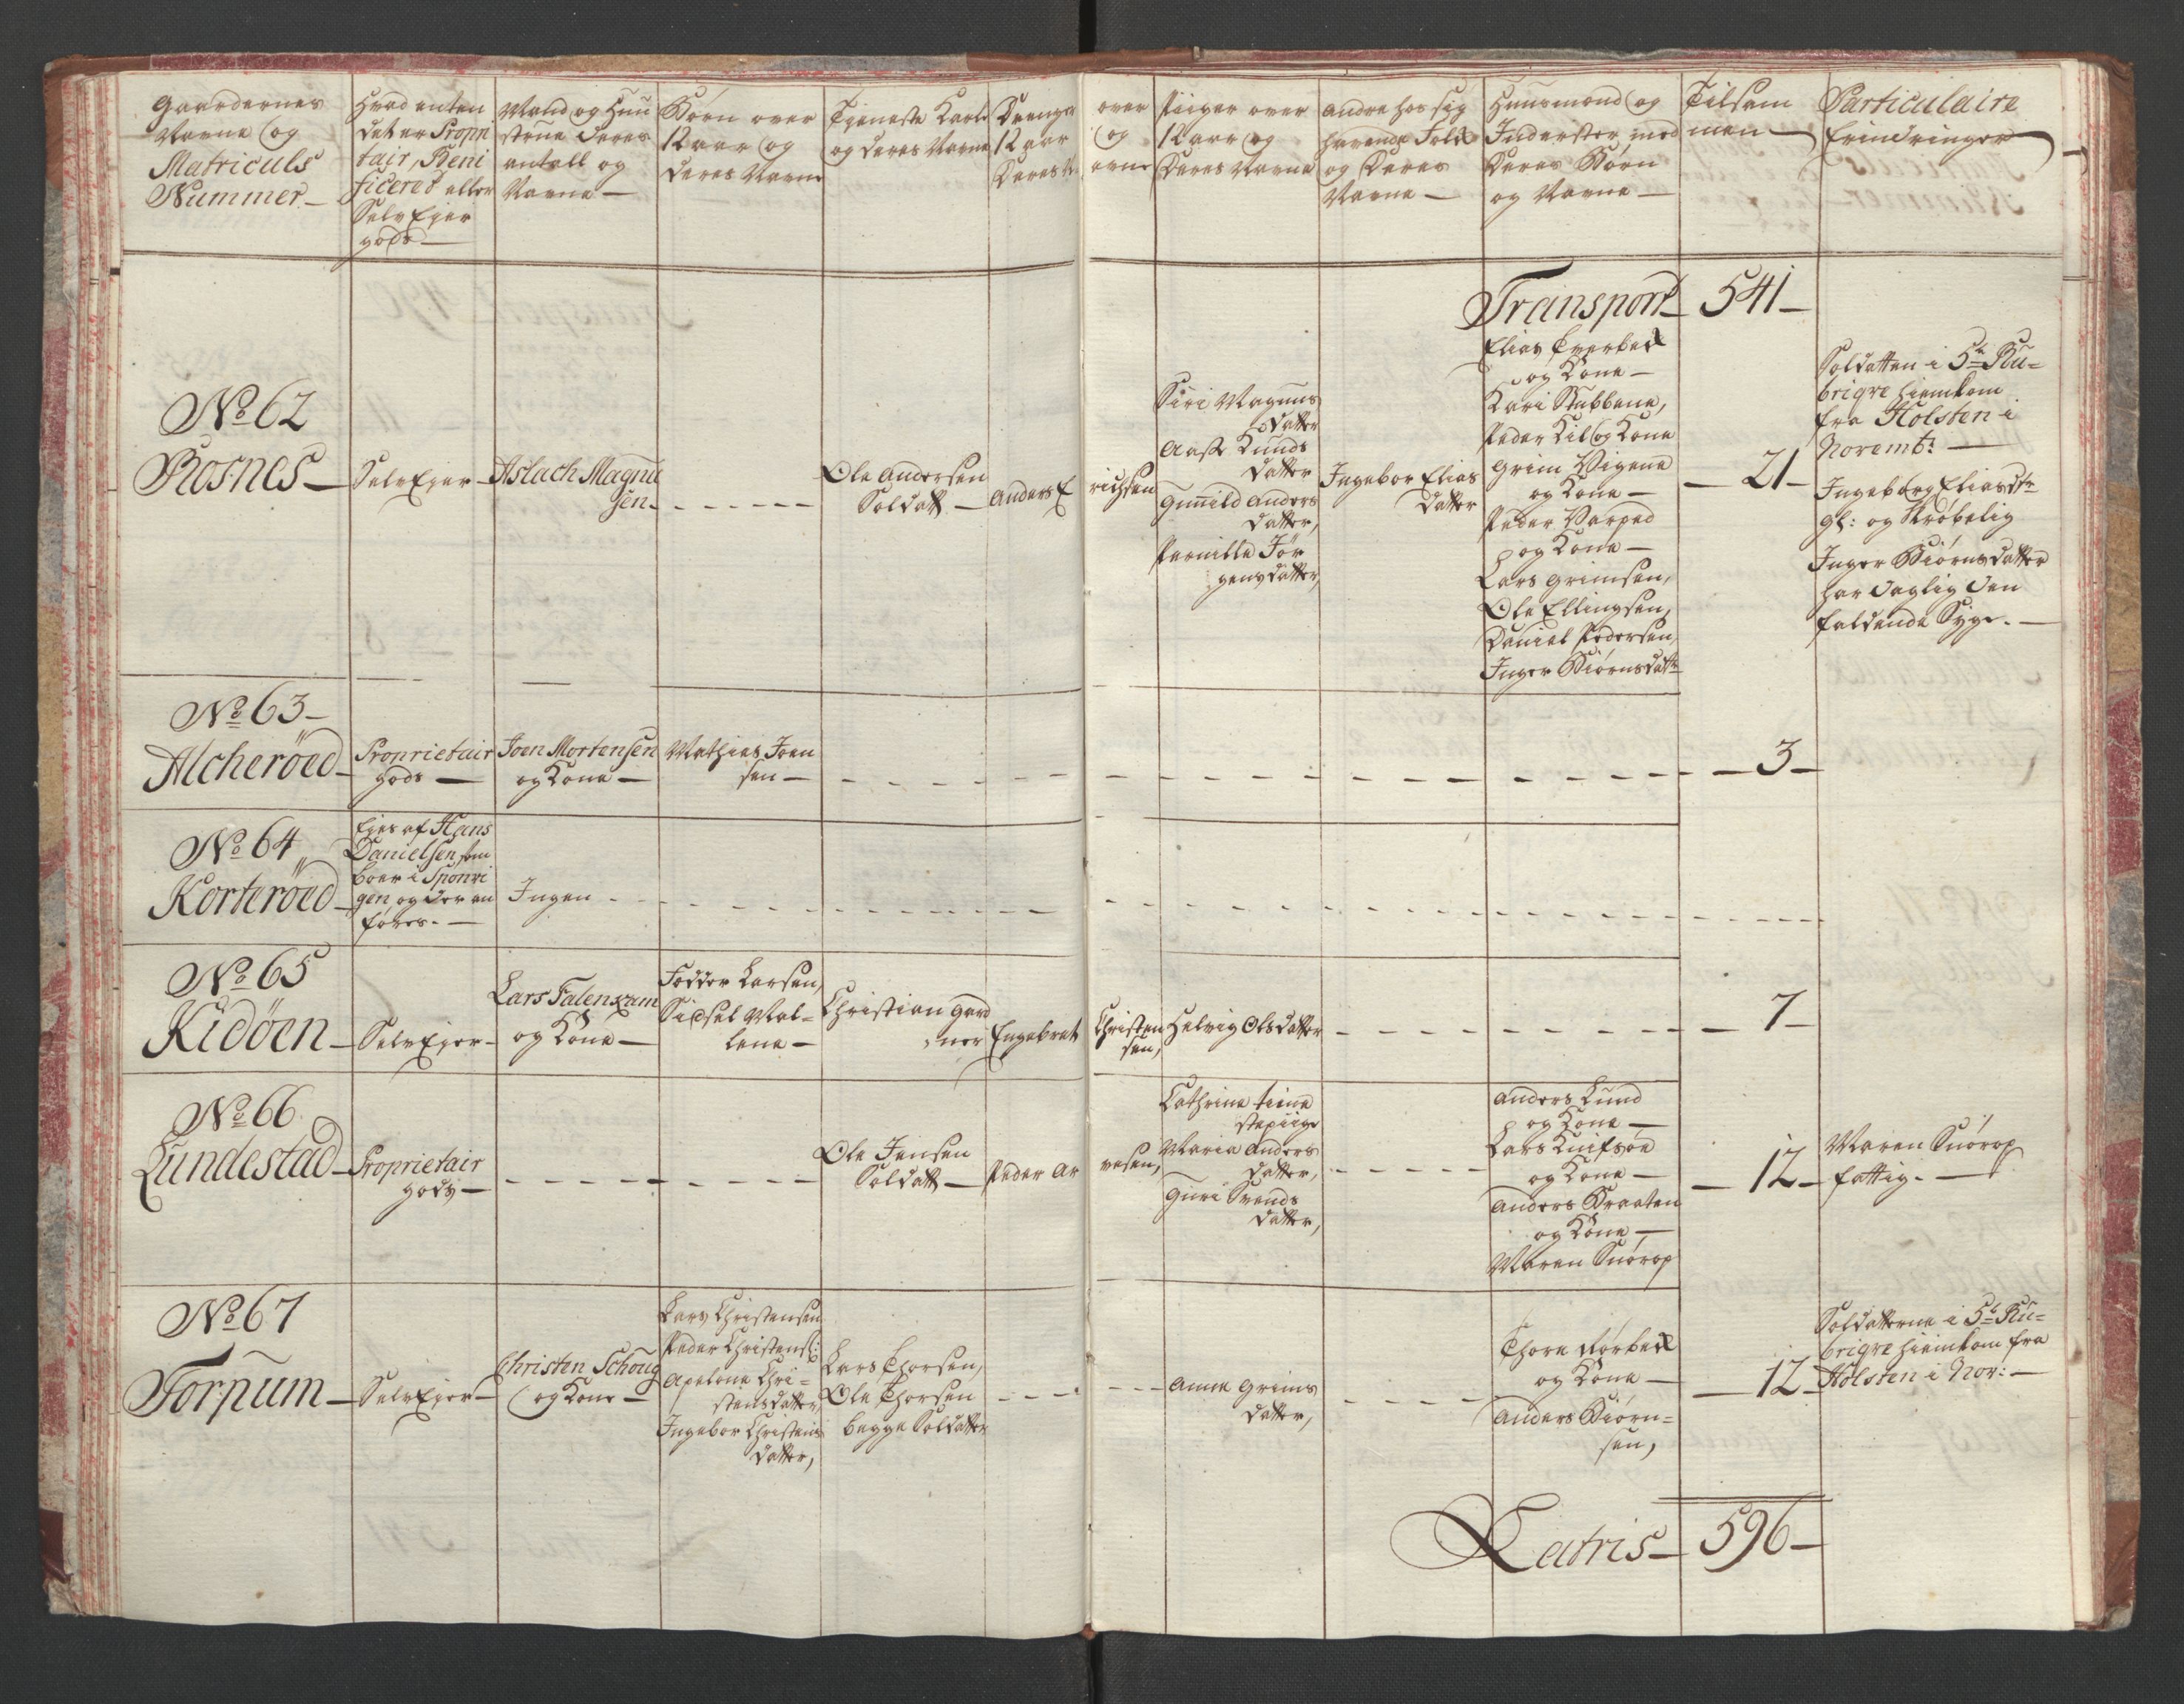 Gaardernes
Navne og
Matriculs
Nummer
Hvad enten
det er Propri
tair, Beni
ficered eller
Selv Ejer
gods
Mand og Huu
strue deres
antall og
Navne
Børn over
12 aar og
deres Navne
Tieneste Karle
og deres Navne
Drenge over
12 aar og
Deres Navne
Piiger over
12 aar og
Deres Navne
andre hos sig
havende Folk
og Deres
Navne
Huusmænd og
Inderster med
Deres Børn
og Navne
Tilsam
men
Particulaire
Erindringer
Transport 541
No 62
Rosnes
Selv Ejer
Aslach Magnu
sen
Ole Andersen
Soldatt
Anders Erichsen
Siri Magnus
datter
Aase Knuds
datter
Gunild Anders
datter,
Pernille Jør
gens datter,
Ingebor Elias
datter
Elias
og Kone
Kari Stubbene,
Peder Kil og Kone
Grim Vigene
og Kone
Peder
og Kone
Lars Grimsen,
Ole Ellingsen,
Daniel Pedersen,
Inger Biørnsdattr
21
Soldatten i 5te Ru-
brique hiemkom
fra Holsten i
Novembr:
Ingeborg Elias dtr
gl: og skrøbelig
Inger Biørnsdatter
har daglig den
faldende Syge.
No 63
Alcheröed
Proprietair
gods
Joen Mortensen
og Kone
Mathias Joen
sen
3
No 64
Korteröed
Ejes af Hans
Danielsen som
boer i Sponvi
gen og der an
føres.
Ingen
No 65
Kidöen
Selv Ejer
Lars Falenkam
og Kone
Fedder Larsen,
Sidsel Mal-
lene
Christian Gard
ner
Engebret Christen
sen,
Helvig Olsdatter
7
No 66
Lundestad
Proprietair
gods
Ole Jensen
Soldatt
Peder Ar vesen,
Cathrine tiene
stepiige
Maria Anders
datter,
Guri Svends
datter,
Anders Lund
og Kone
Lars Knifsøe
og Kone
Anders Braaten
og Kone
Maren Snørop
12
Maren Snørop
fattig.
No 67
Torpum
Selv Ejer
Christen Schoug
og Kone
Lars Christensen
Peder Christens:
Apelone Chri-
stensdatter,
Ingebor Christens
datter,
Lars Thorsen,
Ole Thorsen
begge Soldatter
Anne Grims
datter,
Thore Nørbek
og Kone
Anders Biørn-
sen,
12
Soldatterne i 5te Ru-
brique hiemkom fra
Holsten i Nov:
Latris 596